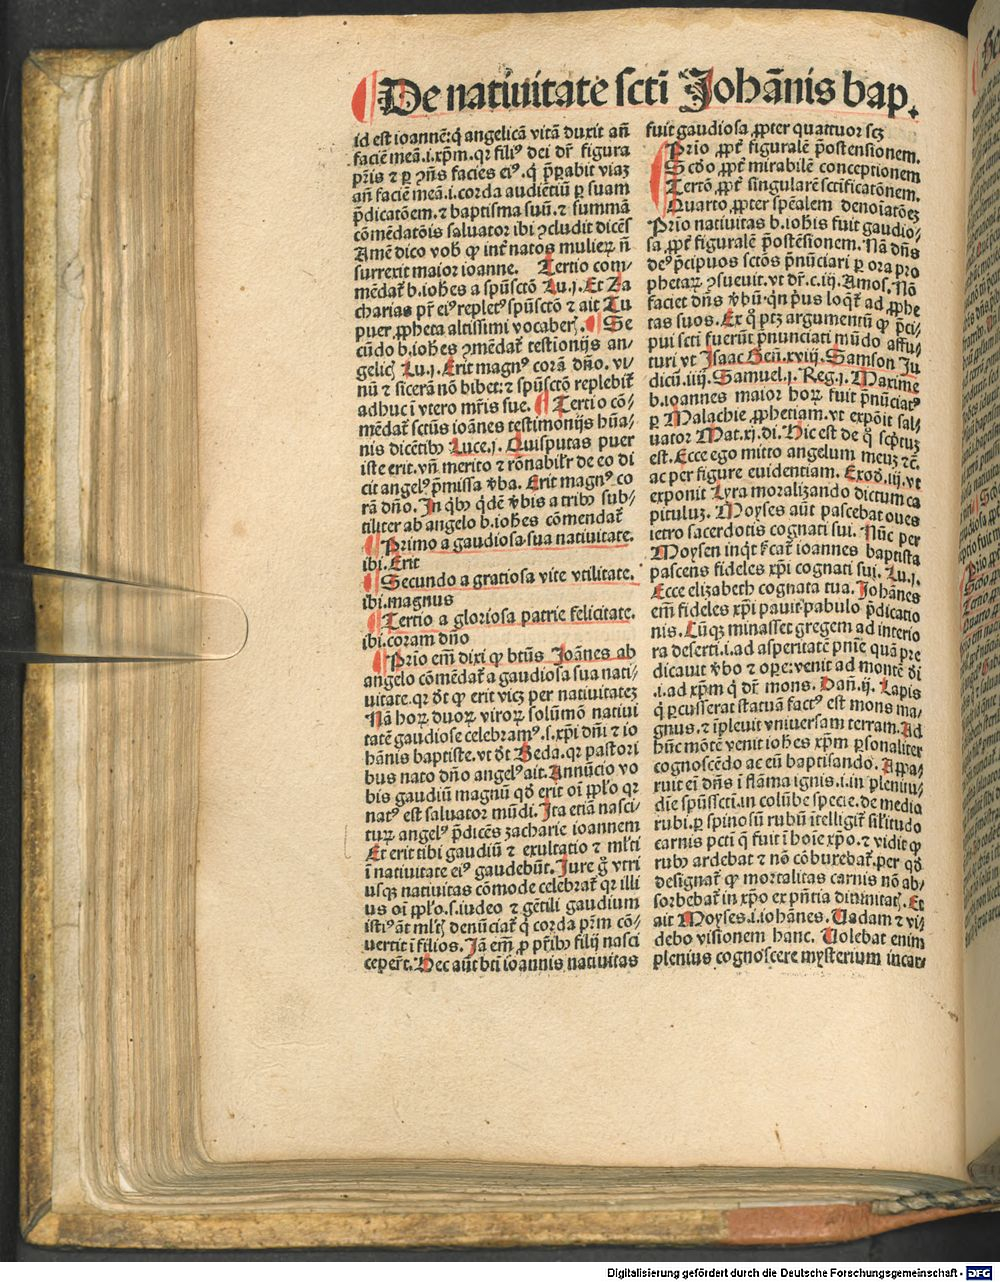 De natiuitate scti Johānis bap.
id est ioannē: q̄ angelicā vitā duxit añ
faciē meā .i. xp̄m. qr filiꝰ dei dr̄ figura
pr̄is ⁊ ꝑ ꝯñs facies eiꝰ. q̄ p̄parabit viaꝫ
añ faciē meā .i. corda audiētiū ꝑ suam
p̄dicatōem. ⁊ baptisma suū. ⁊ summā
cōmēdatōis saluator ibi ꝯcludit dicēs
Amē dico vob̄ ꝙ int̄ natos mulieꝝ ñ
surrexit maior ioanne. Tertio com-
mēdat̄ b. ioh̄es a spūsctō Lu. j. Et Za
charias pr̄ eiꝰ repletꝰ spūsctō ⁊ ait Tu
puer ꝓpheta altissimi vocaber̄. Se
cūdo b. ioh̄es ꝯmēdat̄ testionijs an-
gelic̄ Lu. j. Erit magnꝰ corā dño. vi-
nū ⁊ sicerā nō bibet: ⁊ spūsctō replebit̄
adhuc ī vtero mr̄is sue. Tertio cō-
mēdat̄ sctūs ioānes testimonijs hūa-
nis dicētibꝰ Luce. j. Quisputas puer
iste erit. vñ merito ⁊ rōnabilr̄ de eo di
cit angelꝰ p̄missa v̄ba. Erit magnꝰ co
rā dño. In qb̄ꝰ qdē v̄bis a tribꝰ sub-
tiliter ab angelo b. ioh̄es cōmendat̄
Primo a gaudiosa sua natiuitate.
ibi. Erit
Secundo a gratiosa vite vtilitate.
ibi. magnus
Tertio a gloriosa patrie felicitate.
ibi. coram dño
Prīo em̄ dixi ꝙ btūs Joānes ab
angelo cōmēdat̄ a gaudiosa sua nati-
uitate. qr dt̄ ꝙ erit vicꝫ per natiuitateꝫ
Nā hoꝝ duoꝝ viroꝝ solūmō natiui
tatē gaudiose celebramꝰ. s. xp̄i dñi ⁊ io
hānis baptiste. vt dt̄ Beda. qr pastori
bus nato dño angelꝰ ait. Annūcio vo
bis gaudiū magnū qd̄ erit oī pp̄lo qr
natꝰ est saluator mūdi. Ita etiā nasci-
tuꝝ angelꝰ p̄dicēs zacharie ioannem
Et erit tibi gaudiū ⁊ exultatio ⁊ ml̄ti
ī natiuitate eiꝰ gaudebūt. Jure g̊ vtri
usqꝫ natiuitas cōmode celebrat̄ qr illi
us oī pp̄lo. s. iudeo ⁊ gētili gaudium
istiꝰ āt ml̄t̄ denūciat̄ q̄ corda pr̄m cō-
uertit ī filios. Jā em̄ ꝓ pr̄ibꝰ filij nasci
ceper̄t. Hec aūt bt̄i ioannis natiuitas
fuit gaudiosa ꝓpter quattuor scꝫ
Prīo ꝓpt̄ figuralē p̄ostensionem.
Scd̄o ꝓpt̄ mirabilē conceptionem
Tertō ꝓpt̄ singularē sctīficatōnem.
Quarto ꝓpter spēalem denoīatōeꝫ
Prīo natiuitas b. ioh̄is fuit gaudio-
sa ꝓpt̄ figuralē p̄ostēsionem. Nā dñs
deꝰ p̄cipuos sctōs p̄nūciari ꝑ ora pro
phetaꝝ ꝯsueuit. vt dr̄. c. iij. Amos. Nō
faciet dñs v̄bū. qn pꝰus loqt̄ ad ꝓphe
tas suos. Ex q̊ ptꝫ argumētū ꝙ p̄ci-
pui scti fuerūt p̄nunciati mūdo affu-
turi vt Isaac Geñ. xviij. Samson Ju
dicū. iiij. Samuel. j. Reg. j. Maxime
b. ioannes maior hoꝝ fuit p̄nūciatꝰ
ꝑ Malachie ꝓphetiam. vt expōit sal-
uator Mat. xj. di. Hic est de q̊ scp̄tuꝫ
est. Ecce ego mitto angelum meuꝫ ⁊c̄.
ac per figure euidentiam. Exod̄. iij. vt
exponit Lyra moralizando dictum ca
pituluꝫ. Moyses aūt pascebat oues
ietro sacerdotis cognati sui. Nūc per
Moysen inqt sc̄at̄ ioannes baptista
pascens fideles xp̄i cognati sui. Lu. j.
Ecce elizabeth cognata tua. Johānes
em̄ fideles xp̄i pauit pabulo p̄dicatio
nis. Cūqꝫ minasset gregem ad interio
ra deserti .i. ad asperitatē pnīe quā pre
dicauit v̄bo ⁊ oꝑe: venit ad montē dī
.i. ad xp̄m q̄ dr̄ mons. Dañ. ij. Lapis
q̄ ꝑcusserat statuā factꝰ est mons ma-
gnus. ⁊ īpleuit vniuersam terram. Ad
hūc mōtē venit ioh̄es xp̄m ꝑsonaliter
cognoscēdo ac eū baptisando. Appa-
ruit ei dñs ī flāma ignis .i. in plenitu-
die spūsscti. in colūbe specie. de medio
rubi. ꝑ spinosū rubū ītelligit̄ sil̄itudo
carnis pcti q̄ fuit ī hoīe xp̄o. ⁊ vidit ꝙ
rubꝰ ardebat ⁊ nō cōburebat̄. per qd̄
designat̄ ꝙ mortalitas carnis nō ab-
sorbebat̄ in xp̄o ex pñtia diuinitat̄. Et
ait Moyses .i. iohānes. Vadam ⁊ vi-
debo visionem hanc. Volebat enim
plenius cognoscere mysterium incar-
Digitalisierung gefördert durch die Deutsche Forschungsgemeinschaft - DFG